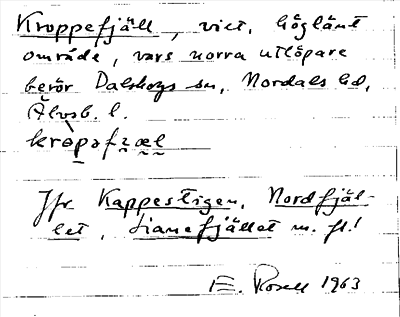 Kroppefjäll, vict. höglänt
område, vars norra utlöpare
berör Dalskogs sn, Nordals hd,
Älvsb. l.
kròpəfzæl
Jfr Kappestigen, Nordfjäl-
let, Lianefjället m. fl.!
E. Rosell 1963